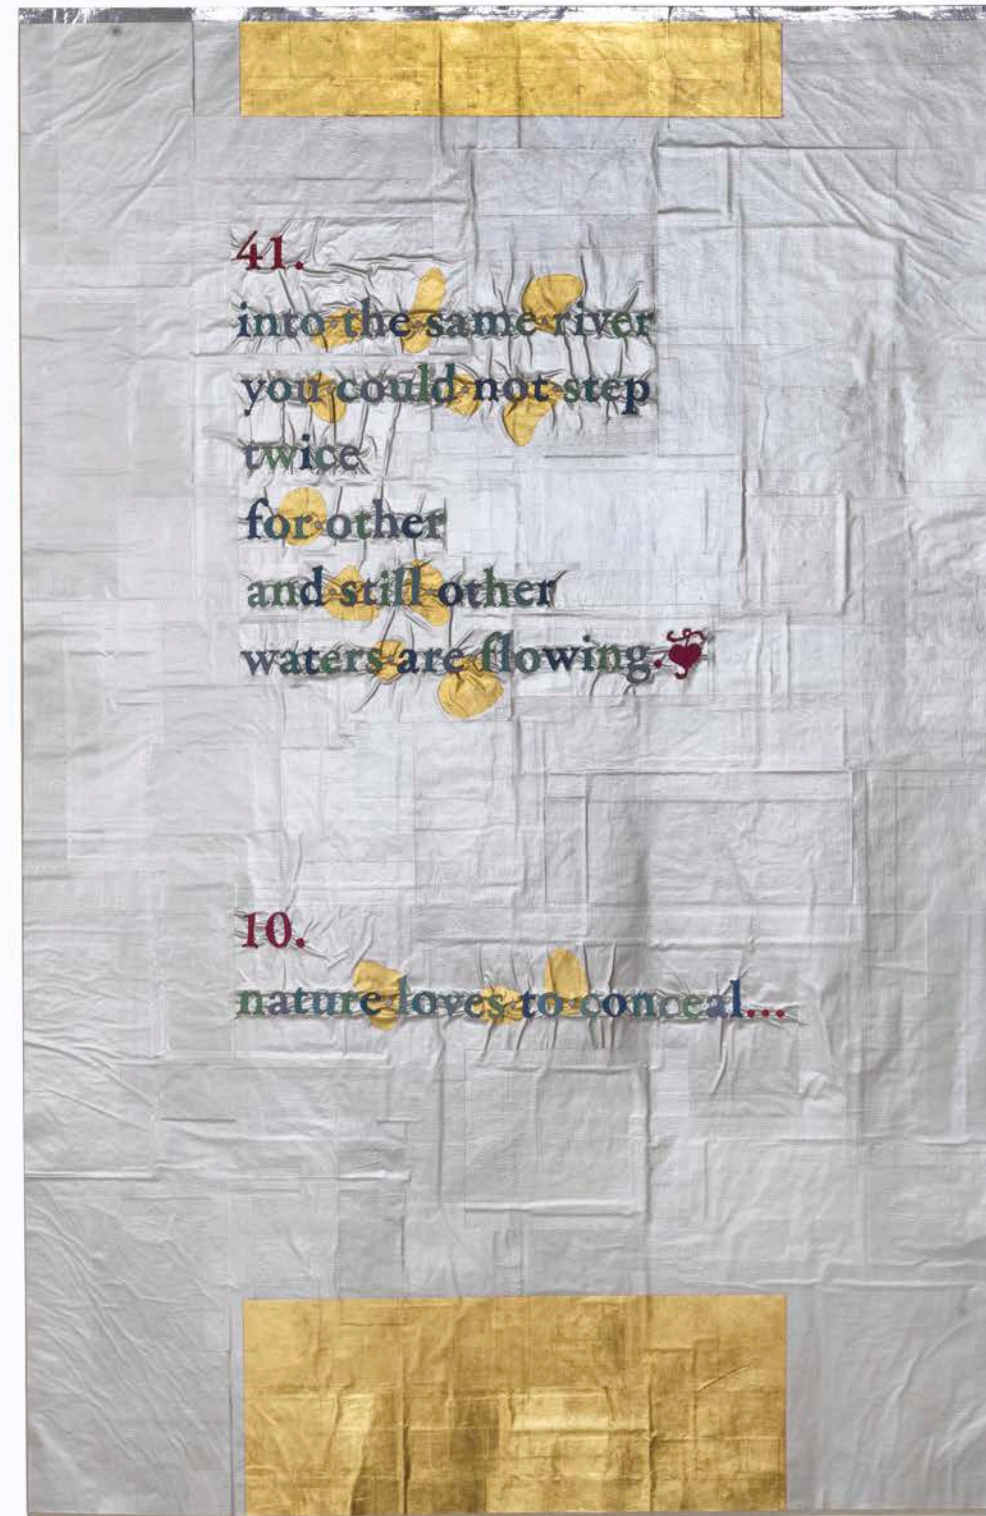 41.
into the same river
you could not step
twice
for other
and still other
waters are flowing.❦
10.
nature loves to conceal...